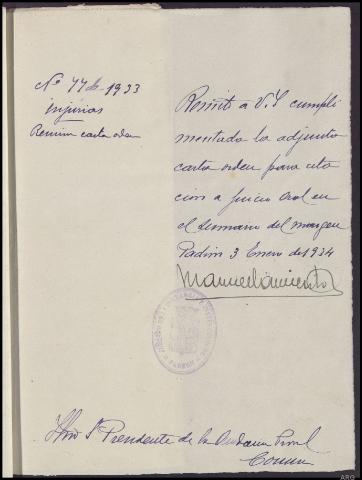 Nº 77 de 1933
injurias
Remision carta orden
Remito a V.S. cumpli
mentada la adjunta
carta orden para cita
cion a juicio oral en
el sumario del margen
Padrón 3 Enero de 1934
Manuel
PADRON
Ilmo Sr Presidente de la Audiencia Provl
Coruña
ARG